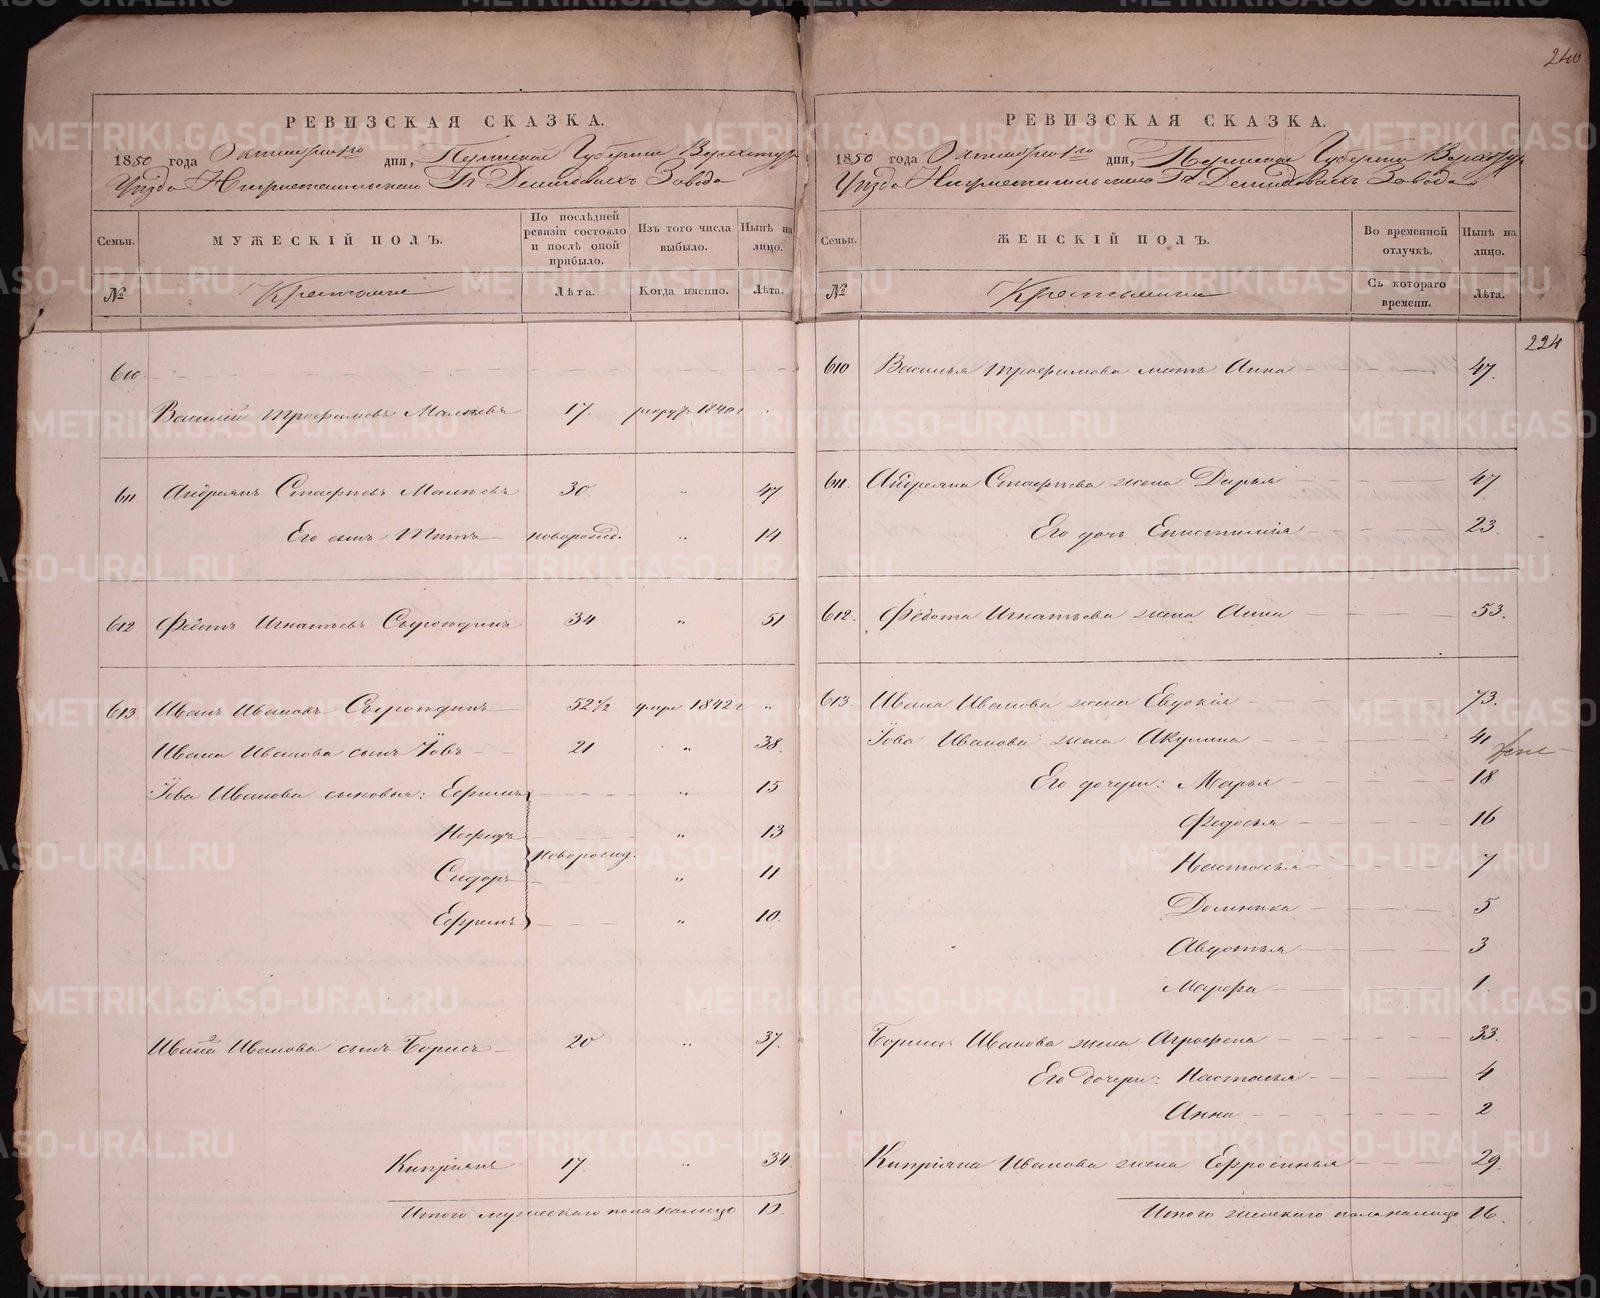 240
РЕВИЗСКАЯ СКАЗКА.
1850 года Октября 1го дня, Пермской Губернии Верхотур.
Уѣзда Нижнетагильскаго Гг. Демидовыхъ Завода
Семьи. МУЖЕСКІЙ ПОЛЪ. По послѣдней ревизіи состояло и послѣ оной прибыло. Изъ того числа выбыло. Нынѣ на лицо.
№ Крестьяне Лѣта. Когда именно. Лѣта.
610
Василій Трофимовъ Малѣевъ 17. рекру. 1840 г
611 Андреянъ Стафѣевъ Малѣевъ 30. " 47
Его сынъ Титъ новорожд. " 14
612 Федотъ Игнатьевъ 34 " 51
613 Иванъ Ивановъ 52½ умре 1842 г "
Ивана Иванова сынъ Іовъ 21 " 38.
Іова Иванова сыновья: Ефимъ " 15
Нефедъ " 13
новорожд.
Сидоръ " 11
Ефримъ " 10.
Ивана Иванова сынъ Борисъ 20 " 37.
2
Кипріянъ 17. " 34.
Итого мужескаго пола налицо 10.
РЕВИЗСКАЯ СКАЗКА.
1850 года Октября 1го дня, Пермской Губерніи Верхотур.
Уѣзда Нижнетагильскаго Гг. Демидовыхъ Завода
Семьи. ЖЕНСКІЙ ПОЛЪ. Во временной отлучкѣ. Нынѣ на лицо.
№ Крестьянки Съ котораго времени. Лѣта.
224
610 Василья Трофимова мать Анна 47.
611. Андреяна Стафѣева жена Дарья 47
Его дочь 23.
612. Федота Игнатьева жена Анна 53.
613. Ивана Иванова жена Евдокія 73.
Іова Иванова жена Акулина 41
Его дочери: Марья 18
Федосья 16
Настасья 7
Домника 5
Авдотья 3
Марфа 1.
Бориса Иванова жена Агрофена 33.
Его дочери: Настасья 4
Анна 2
Кипріяна Иванова жена Ефросинья 29.
Итого женскаго пола налицо 16.
METRIKI.GASO-URAL.RU